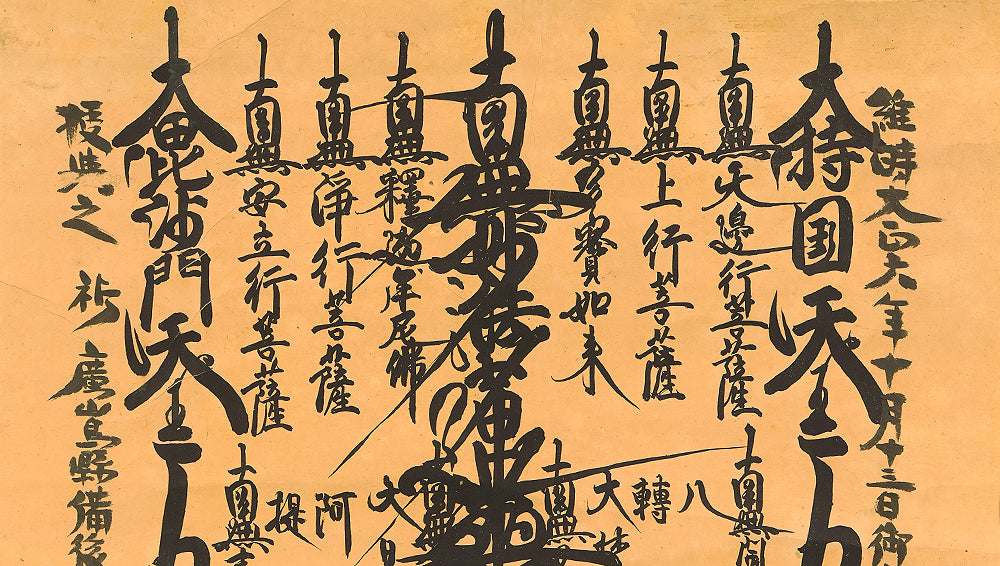 維時大正六年十月十三日御
大持国天王
南無无邊行菩薩
南無上行菩薩
南無多寳如来
南無妙法蓮華
南無釋迦牟尼佛
南無淨行菩薩
南無安立行菩薩
大毘沙門天王
授与之 祈 廣島縣備後
南無
八
轉
大梵
南無
南無
大日
阿
提
南無